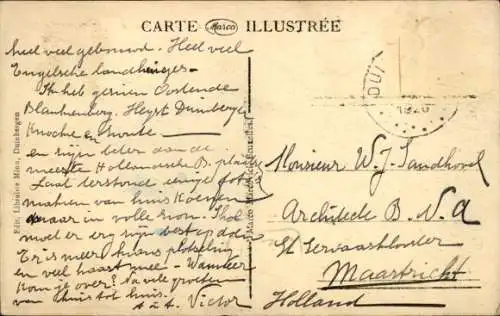 CARTE Marco ILLUSTRÉE
heel veel gebouwd. Heel veel
Engelsche landhuisjes
Ik heb gezien Oostende
Blankenberg. Heyst Duinbergen
Knocke en
en zijn beter dan de
meeste Hollandsche B. plaatsen
Laat terstond eenige foto
maken van huis
maar in volle zon.
moet er erg zijn best op doen
Er is meer kans plotseling
en veel haast mee - Wanneer
Kom je over? Na vele groeten
van thuis tot huis.
a.t.t. Victor
Edit. Librairie Mina, Duinbergen
DUI
1920
Monsieur W. J. Sandhovel
Architecte B. N. A
St Servaasklooster
Maastricht
Holland